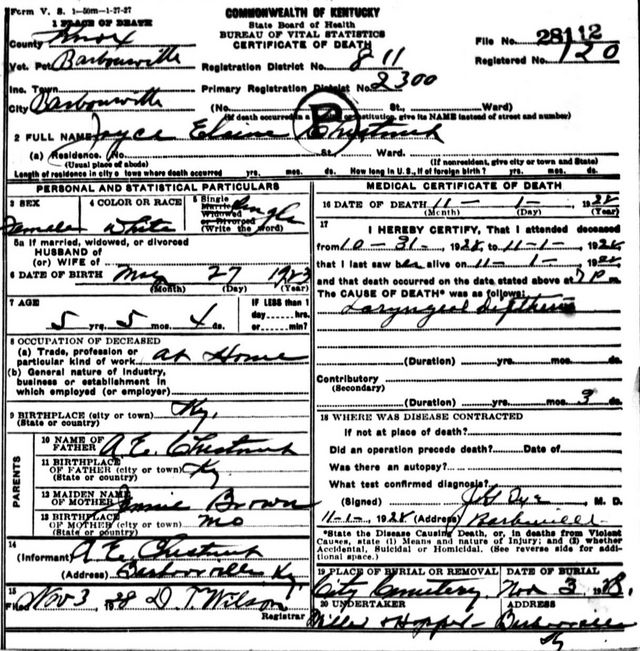 Form V. S. 1-50m-1-27-27
COMMONWEALTH OF KENTUCKY
State Board of Health
BUREAU OF VITAL STATISTICS
CERTIFICATE OF DEATH
1 PLACE OF DEATH
County Knox
File No. 28112
Registered No. 120
Vot. Pct. Barbourville
Registration District No. 811
Inc. Town
Primary Registration District No. 2300
City Barbourville (No. St., Ward)
(If death occurred in a hospital or institution, give its NAME instead of street and number)
2 FULL NAME Joyce Elaine Chestnut
(a) Residence. No. St. Ward.
(Usual place of abode) (If nonresident, give city or town and State)
Length of residence in city or town where death occurred yrs. mos. ds. How long in U. S., if of foreign birth? yrs. mos. ds.
PERSONAL AND STATISTICAL PARTICULARS
3 SEX Female
4 COLOR OR RACE White
5 Single Married Widowed or Divorced (Write the word) Single
5a If married, widowed, or divorced
HUSBAND of
(or) WIFE of
6 DATE OF BIRTH May 27 1923
(Month) (Day) (Year)
7 AGE
5 yrs. 5 mos. 4 ds.
IF LESS than 1
day hrs.
or min.
8 OCCUPATION OF DECEASED
(a) Trade, profession or
particular kind of work At Home
(b) General nature of industry,
business or establishment in
which employed (or employer)
9 BIRTHPLACE (city or town) Ky.
(State or country)
PARENTS
10 NAME OF
FATHER A. E. Chestnut
11 BIRTHPLACE
OF FATHER (city or town) Ky
(State or country)
12 MAIDEN NAME
OF MOTHER Jennie Brown
13 BIRTHPLACE
OF MOTHER (city or town) Mo
(State or country)
14
(Informant) A. E. Chestnut
(Address) Barbourville Ky.
15
Filed Nov 3, 1928 D. T. Wilson
Registrar
MEDICAL CERTIFICATE OF DEATH
16 DATE OF DEATH 11- 1- 1928
(Month) (Day) (Year)
17
I HEREBY CERTIFY, That I attended deceased
from 10-31-, 1928 to 11-1-, 1928
that I last saw her alive on 11-1-, 1928
and that death occurred on the date stated above at 7 P m.
The CAUSE OF DEATH* was as follows:
Laryngeal Diptheria
(Duration) yrs. mos. ds.
Contributory
(Secondary)
(Duration) yrs. mos. 3 ds.
18 WHERE WAS DISEASE CONTRACTED
If not at place of death?
Did an operation precede death? Date of
Was there an autopsy?
What test confirmed diagnosis?
(Signed) M. D.
11-1-, 1928 (Address) Barbourville
*State the Disease Causing Death, or, in deaths from Violent
Causes, state (1) Means and nature of Injury; and (2) whether
Accidental, Suicidal or Homicidal. (See reverse side for additional space.)
19 PLACE OF BURIAL OR REMOVAL
City Cemetery.
DATE OF BURIAL
Nov 3, 1928.
20 UNDERTAKER
ADDRESS
Barbourville
Ky